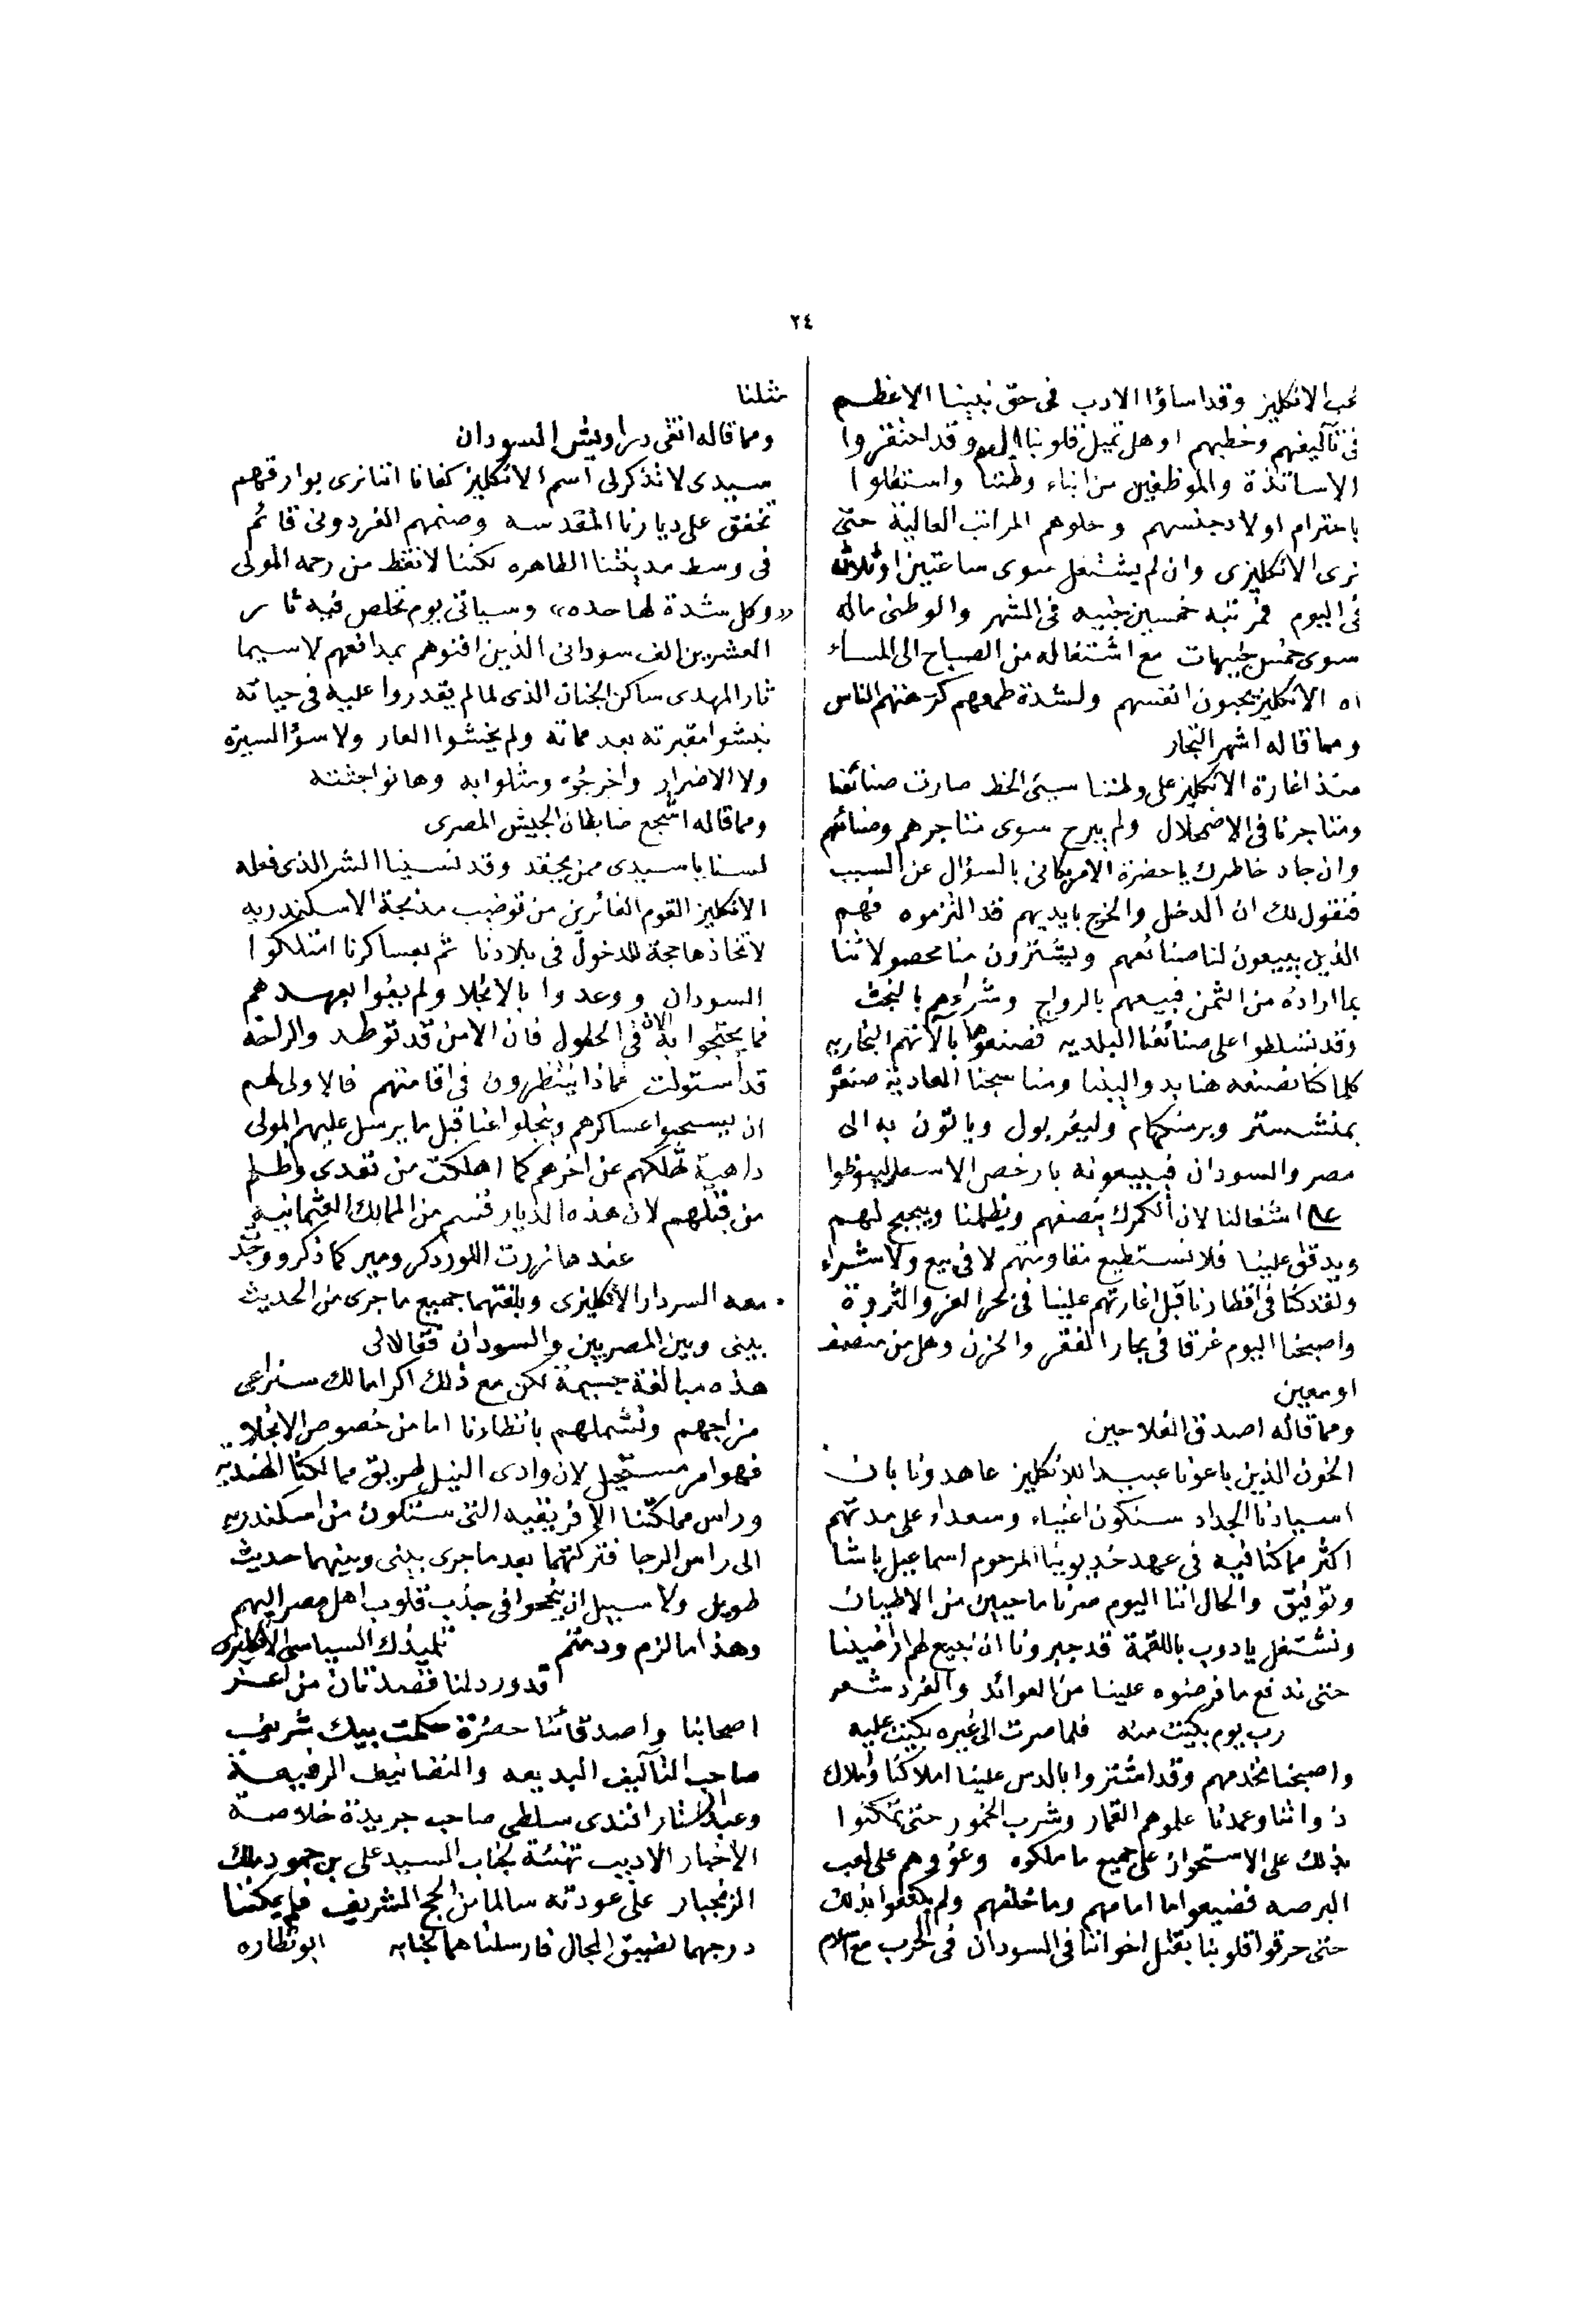 ٢٤
نحب الانكليز وقد اساؤا الادب فى حق نبينا الاعظم
فى تآليفهم وخطبهم اوهل تميل قلوبنا اليهم وقد احتقروا
الاساتذة والموظفين من ابناء وطننا واستقلوا
باحترام اولاد جنسهم وخلوهم المراتب العالية حتى
نرى الانكليزى وان لم يشتغل سوى ساعتين او ثلاثة
فى اليوم فمرتبه خمسين جنيه فى الشهر والوطنى ماله
سوى خمس جنيهات مع اشتغاله من الصباح الى المساء
اه الانكليز يحبون انفسهم ولشدة طمعهم كرهتهم الناس
ومما قاله اشهر التجار
منذ اغارة الانكليز على وطننا سيئ الحظ صارت صنائعنا
ومتاجرنا فى الاضمحلال ولم يبرح سوى متاجرهم وصنائعهم
وان جاد خاطرك يا حضرة الامريكانى بالسؤال عن السبب
فنقول لك ان الدخل والخرج بايديهم قد التزموه فهم
الذين يبيعون لنا صنائعهم ويشترون منا محصولاتنا
بما ارادوه من الثمن فبيعهم بالرواج وشراءهم بالبخث
وقد تسلطوا على صنائعنا البلديه فصنعوها بآلاتهم البخاريه
كلما كنا نصنعه هنا بيدوالينا ومناسجنا العادية صنعوه
بمنشستر وبرمنكهام وليفربول وياتون به الى
مصر والسودان فيبيعونه بارخص الاسعار ليبوظوا
علينا اشغالنا لان الكمرك ينصفهم ويظلمنا ويبجبح لهم
ويدقق علينا فلا نستطيع مقاومتهم لا فى بيع ولا شراء
ولقد كنا فى اقطارنا قبل اغارتهم علينا فى بحر العز والثروة
واصبحنا اليوم غرقا فى بحار الفقر والحزن وهل من منصف
او معين
ومما قاله اصدق الفلاحين
الخون الذين باعونا عبيدا للانكليز عاهدونا بان
اسيادنا الجداد سنكون اغنياء وسعداء على مدتهم
اكثر مما كنا فيه فى عهد خديوينا المرحوم اسماعيل باشا
وتوفيق والحال اننا اليوم صرنا ما حيين من الاطيان
ونشتغل يادوب باللقمة قد جبرونا ان نبيع لهم اراضينا
حتى ندفع ما فرضوه علينا من العوائد والفرد شعر
رب يوم بكيت منه فلما صرت الى غيره بكيت عليه
واصبحنا نخدمهم وقد اشتروا بالدس علينا املاكنا واملاك
ذواتنا وعمدنا علموهم القمار وشرب الخمور حتى تمكنوا
بذلك على الاستحواذ على جميع ما ملكوه وعودوهم على لعب
البرصه فضيعوا ما امامهم وما خلفهم ولم يكتفوا بذلك
حتى حرقوا قلوبنا بقتل اخواننا فى السودان فى الحرب مع اسلام
مثلنا
ومما قاله اتقى دراويش السودان
سيدى لا تذكر لى اسم الانكليز كفانا اننا نرى بوارقهم
تخفق على ديارنا المقدسه وصنمهم الغردونى قائم
فى وسط مدينتنا الطاهره لكننا لا نقنط من رحمه المولى
«وكل شدة لها حده» وسياتى يوم نخلص فيه ثار
العشرين الف سودانى الذين افنوهم بمدافعهم لا سيما
ثار المهدى ساكن الجنان الذى لما لم يقدروا عليه فى حياته
نبشوا مقبرته بعد مماته ولم يخشوا العار ولا سؤ السيرة
ولا الاضرار واخرجوه ومثلوا به وهانوا جثته
ومما قاله اشجع ضابطان الجيش المصرى
لسنا يا سيدى ممن يحقد وقد نسينا الشر الذى فعله
الانكليز القوم الفائزين من توضيب مذبحة الاسكندريه
لاتخاذها حجة للدخول فى بلادنا ثم بعساكرنا امتلكوا
السودان ووعدوا بالانجلا ولم يفوا بعهدهم
فما يحتجوا به الان فى الحلول فان الامن قد توطد والراحة
قد استولت فماذا ينتظرون فى اقامتهم فالاولى لهم
ان يسحبوا عساكرهم وينجلوا عنا قبل ما يرسل عليهم المولى
داهية تهلكهم عن اخرهم كما اهلكت من تعدى وظلم
من قبلهم لان هذه الديار قسم من الممالك العثمانية
عندها زرت اللورد كرومير كما ذكر ووجد
معه السردار الانكليزى وبلغتهما جميع ما جرى من الحديث
بينى وبين المصريين والسودان فقالا لى
هذه مبالغة جسيمة لكن مع ذلك اكراما لك سنراعى
مزاجهم ونشملهم بانظارنا اما من خصوص الانجلاء
فهو امر مستحيل لان وادى النيل طريق ممالكنا الهندية
وراس مملكتنا الافريقيه التى ستكون من اسكندريه
الى راس الرجا فتركتهما بعد ما جرى بينى وبينهما حديث
طويل ولا سبيل ان ينجحوا فى جذب قلوب اهل مصر اليهم
وهذا ما لزم ودمتم تلميذك السياسى الانكليزى
قد ورد لنا قصدتان من اعز
اصحابنا واصدقائنا حضرة حكمت بيك شريف
صاحب التآليف البديعه والتصانيف الرفيعة
وعبد الستار افندى سلطى صاحب جريدة خلاصة
الاخبار الاديب تهنئة لجناب السيد على بن حمود ملك
الزنجبار على عودته سالما من الحج الشريف فلم يمكننا
درجهما لضيق المجال فارسلناهما لجنابه ابو نظاره